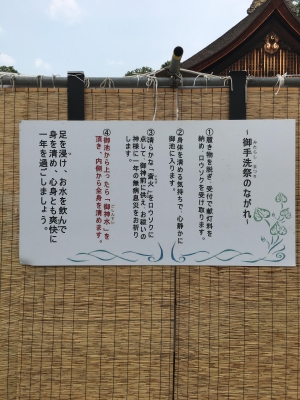 ～御手洗祭のながれ～
みたらし まつり
①履き物を脱ぎ、受付で献灯料を
納め、ロウソクを受け取ります。
②身体を清める気持ちで、心静かに
御池に入ります。
③清らかな「斎火」をロウソクに
点して、御神前に供え、お祓いの
神様に一年の無病息災をお祈り
します。
④御池から上ったら「御神水」を
頂き、内側から全身を清めます。
足を浸け、お水を飲んで
身を清め、心身とも爽快に
一年を過ごしましょう。